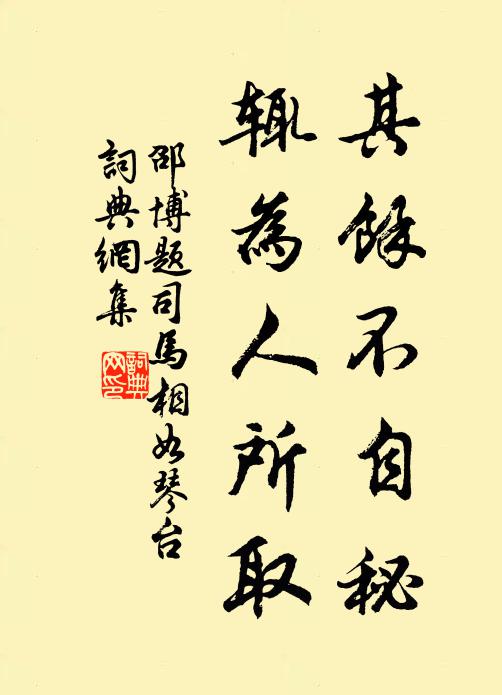 其餘不自秘
輒為人所取
邵博题司馬相如琴台
詞典網集
詞典网印